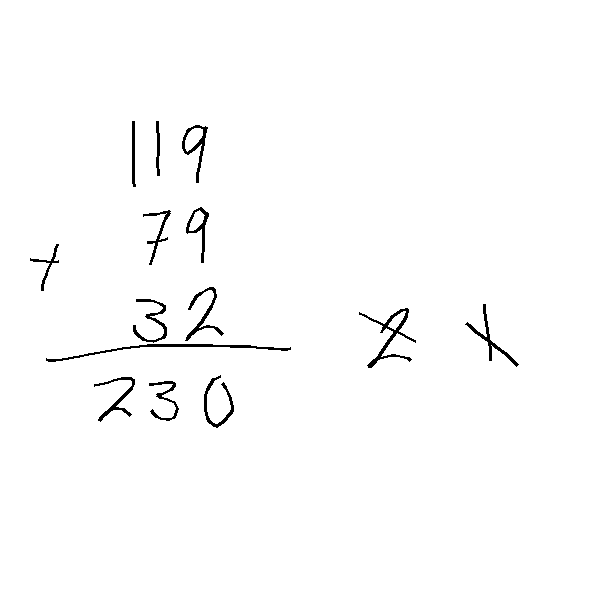 119
79
+
32
230 2 1